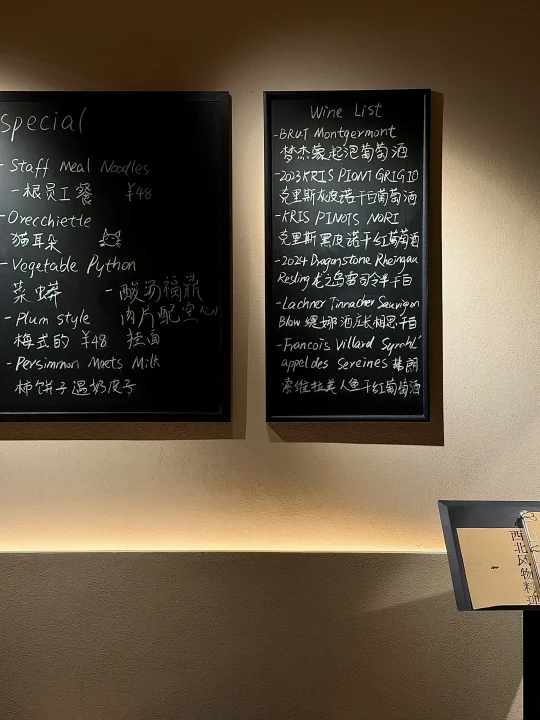 Special
- Staff Meal Noodles
一根员工餐 ¥48
- Orecchiette
猫耳朵
- Vegetable Python
菜蟒
- 酸汤福鼎
肉片配空心
挂面
- Plum style
梅式的 ¥48
- Persimmon Meets Milk
柿饼子遇奶皮子
Wine List
- BRUT Montgermont
梦杰蒙起泡葡萄酒
- 2023 KRIS PIONT GRIGIO
克里斯灰皮诺干白葡萄酒
- KRIS PINOTS NORI
克里斯黑皮诺干红葡萄酒
- 2024 Dragonstone Rheingau
Resling 龙之岛雷司令半干白
- Lachner Tinnacher Sauvigon
Blow 缇娜酒庄长相思干白
- Francois Villard Syrah
appel des Sereines 弗朗
索维拉美人鱼干红葡萄酒
西北风物料理